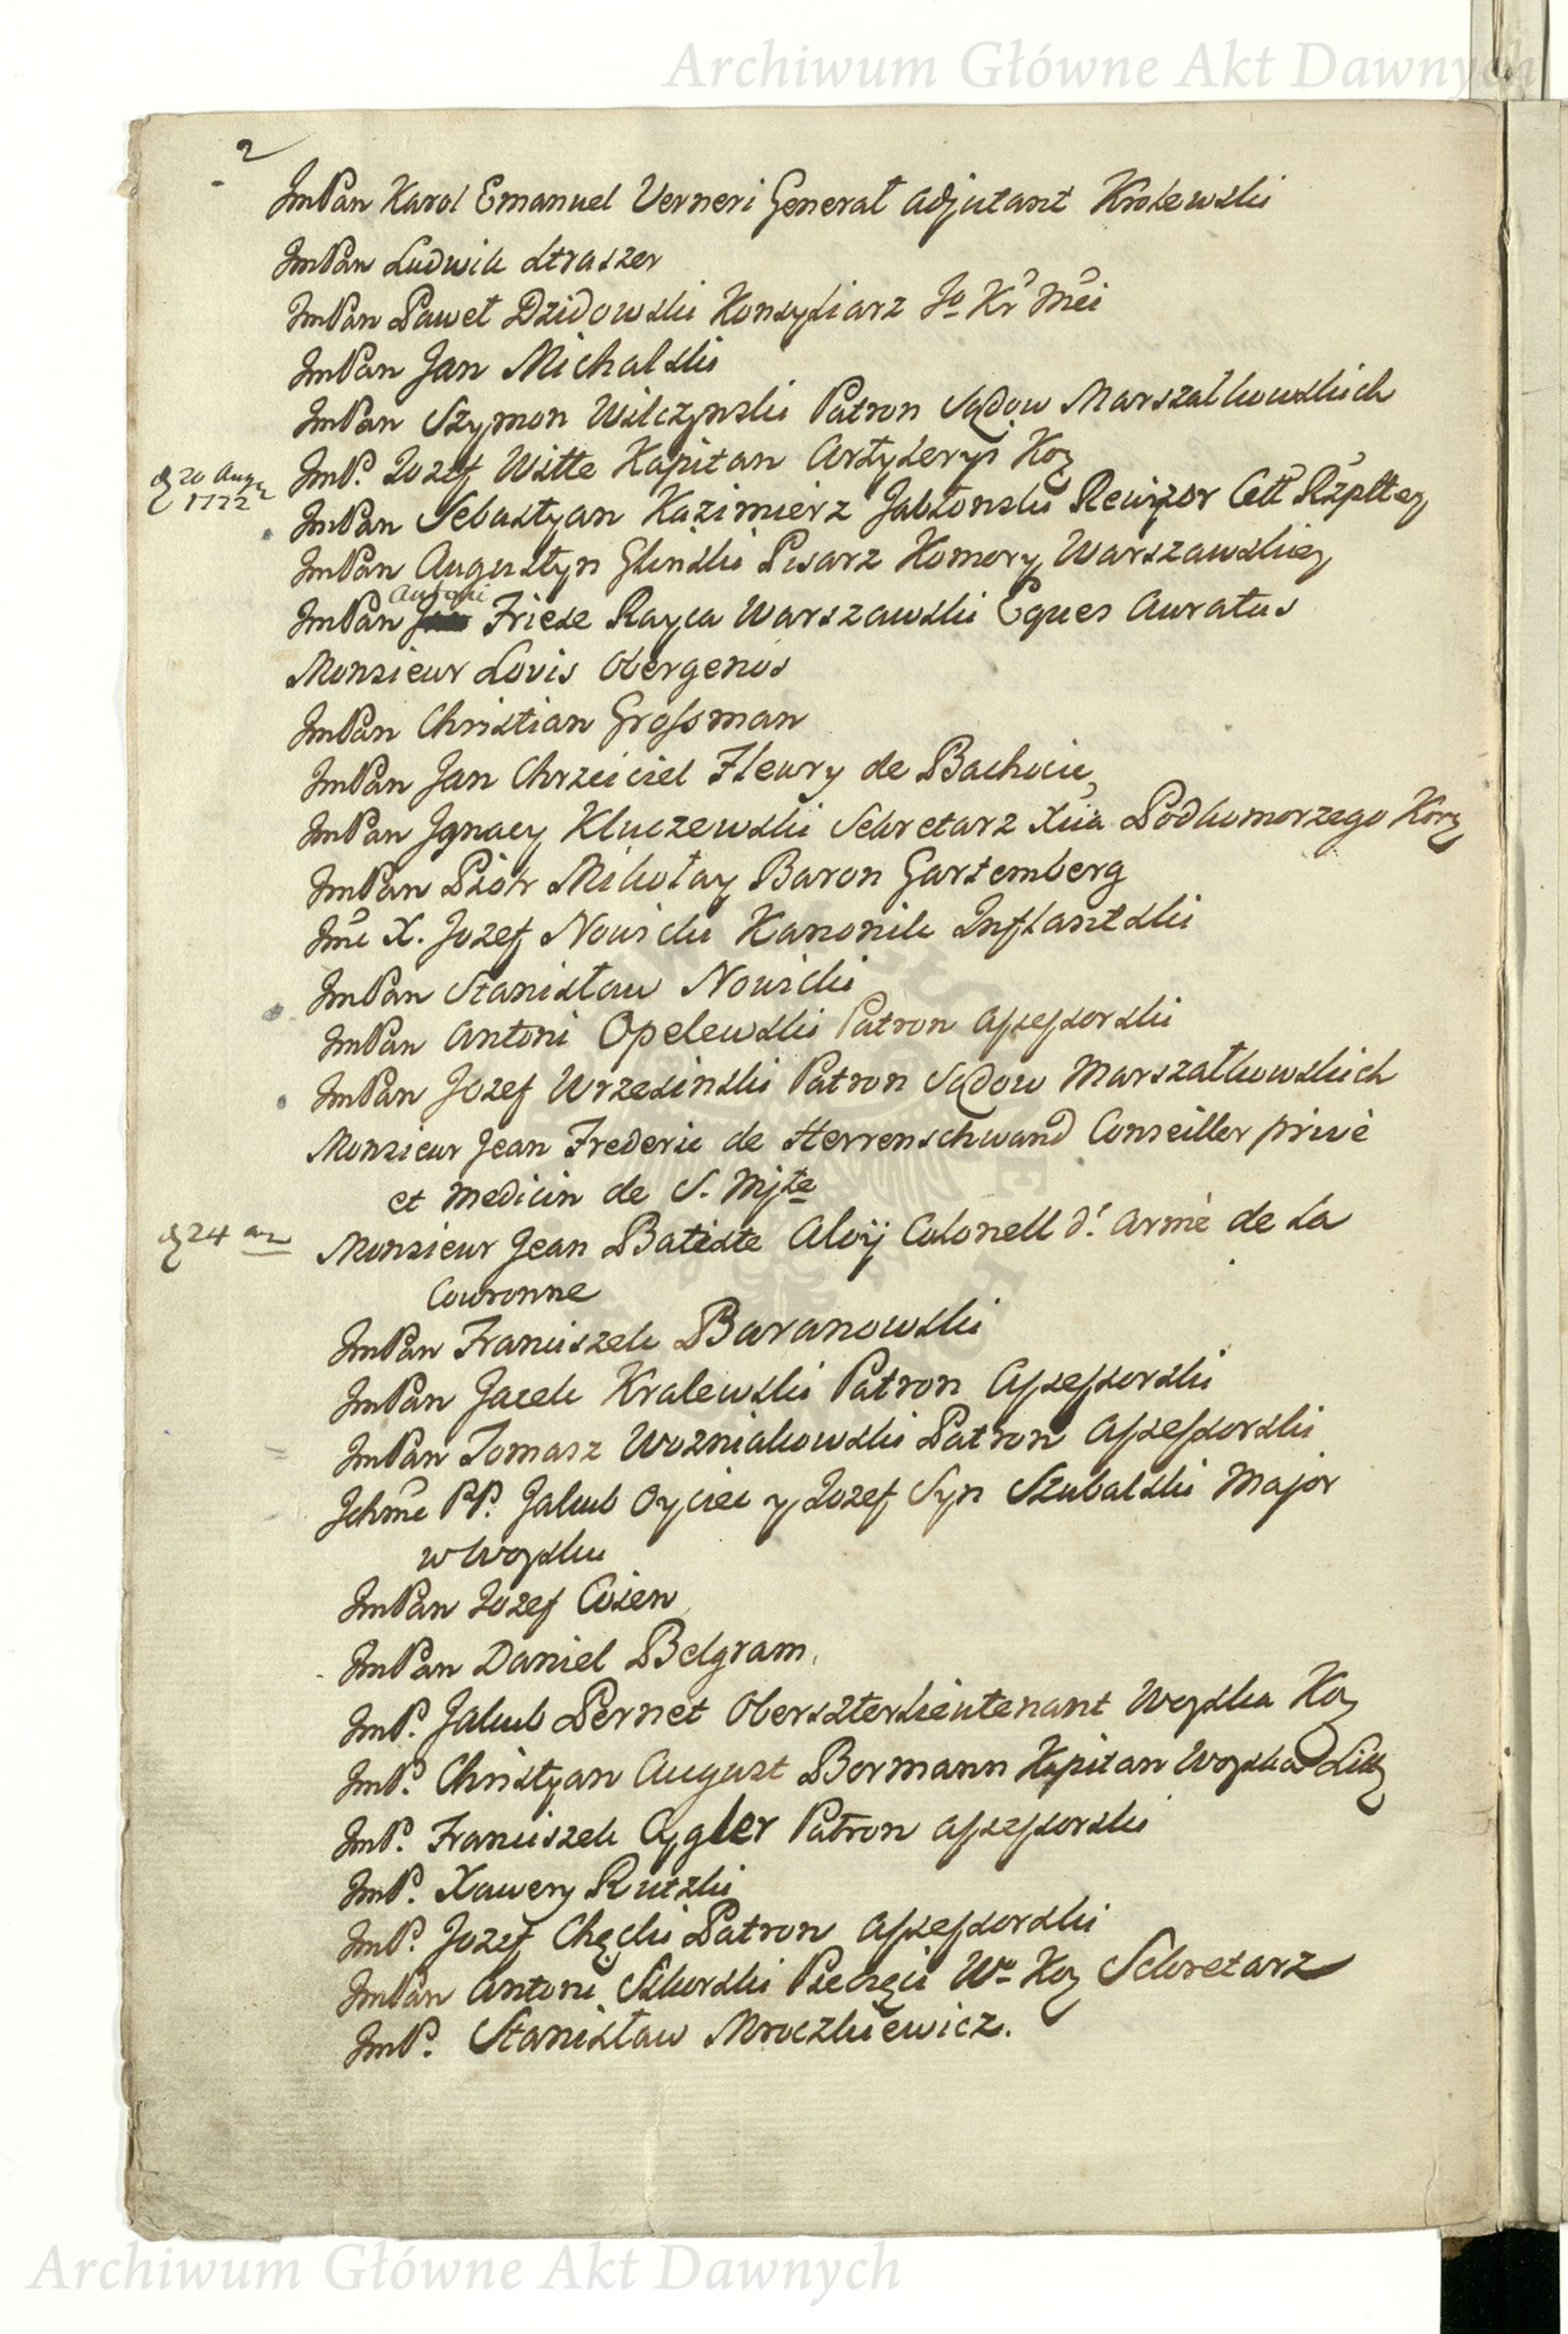 Archiwum Główne Akt Dawnych
2
ImPan Karol Emanuel Verneri Generał Adjutant Krolewski
ImPan Ludwik Straszer
ImPan Paweł Dzidowski Konsyliarz Jo Kr Mci
ImPan Jan Michalski
ImPan Szymon Wilczynski Patron Sądow Marszałkowskich
d 20 Aug
1772
ImP. Jozef Witte Kapitan Artyleryi Kor
ImPan Sebastyan Kazimierz Jabłonski Rewizor Cełł Rzpltey
ImPan Augustyn Glinski Pisarz Komory Warszawskiey
Antoni
ImPan Friese Rayca Warszawski Eques Auratus
Monsieur Lovis Obergenos
ImPan Christian Grossman
ImPan Jan Chrzciciel Fleury de
ImPan Ignacy Kluczewski Sekretarz Xcia Podkomorzego Kor
ImPan Piotr Mikołay Baron Gartemberg
Imc X. Jozef Nowicki Kanonik Inflantski
ImPan Stanisław Nowicki
ImPan Antoni Opelewski Patron Assessorski
ImPan Jozef Wrzesinski Patron Sądow Marszałkowskich
Monsieur Jean Frederic de Herrenschwand Conseiller privé
et Medicin de S. Mjte
d 24
Monsieur Jean Batiste Aloÿ Colonell d'Armé de La
Couronne
ImPan Franciszek Baranowski
ImPan Jacek Kralewski Patron Assessorski
ImPan Tomasz Wozniakowski Patron Assessorski
Ichmc PP. Jakub Oyciec y Jozef Syn Szubalski Major
w Woysku
ImPan Jozef Cosen
ImPan Daniel Belgram.
ImP. Jakub Pernet Oberszterlieutenant Woyska Kor
ImP. Christyan August Bormann Kapitan Woyska Litt
ImP. Franciszek Cygler Patron Assessorski
ImP. Xawery Rutski
ImP. Jozef Chęcki Patron Assessorski
ImPan Antoni Sikorski Pieczęci Wo Kor Sekretarz
ImP. Stanisław Mroczkiewicz.
Archiwum Główne Akt Dawnych